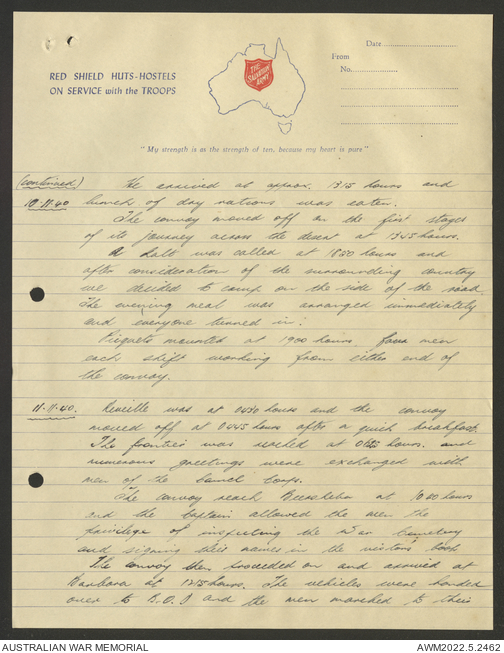 RED SHIELD HUTS-HOSTELS
ON SERVICE with the TROOPS
THE
SALVATION
ARMY
Date
From
No.
"My strength is as the strength of ten, because my heart is pure"
(continued) He arrived at approx. 1315 hours and
10.11.40 lunch of day rations was eaten.
The convoy moved off on the first stages
of its journey across the desert at 1345 hours.
A halt was called at 1820 hours and
after consideration of the surrounding country
we decided to camp on the side of the road.
The evening meal was arranged immediately
and everyone turned in.
Picquets mounted at 1900 hours. Four men
each shift working from either end of
the convoy.
11.11.40. Reveille was at 0430 hours and the convoy
moved off at 0445 hours after a quick breakfast.
The frontier was reached at hours. and
numerous greetings were exchanged with
men of the Camel Corps.
The convoy reach Beersheba at hours
and the Captain allowed the men the
privilege of inspecting the War Cemetery
and signing their names in the visitors book.
The convoy then proceeded on and arrived at
Barbara at 1215 hours. The vehicles were handed
over to B.O.O and the men marched to their
AUSTRALIAN WAR MEMORIAL
AWM2022.5.2462